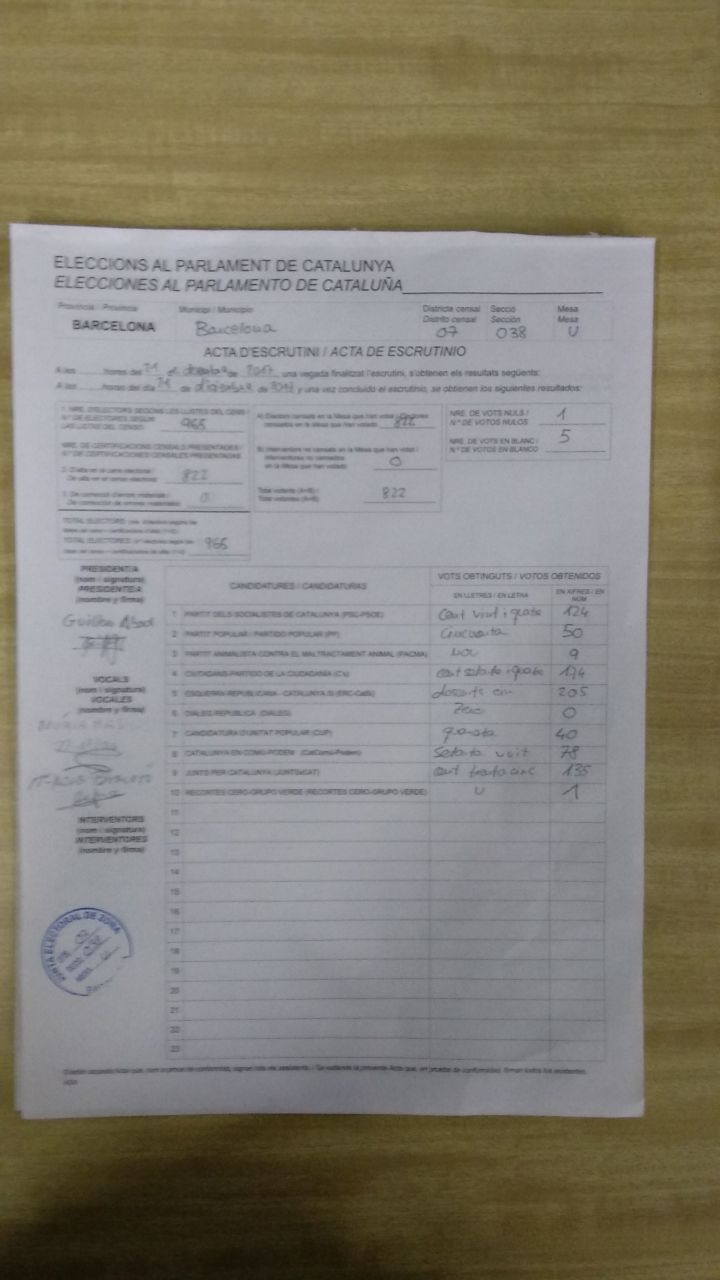 ELECCIONS AL PARLAMENT DE CATALUNYA
ELECCIONES AL PARLAMENTO DE CATALUÑA
Província / Provincia
Municipi / Municipio
Districte censal
Distrito censal
Secció
Sección
Mesa
Mesa
BARCELONA
Barcelona
07
038
U
ACTA D'ESCRUTINI / ACTA DE ESCRUTINIO
A les hores del 21 de desembre de 2017, una vegada finalitzat l'escrutini, s'obtenen els resultats següents:
A las horas del día 21 de diciembre de 2017 y una vez concluido el escrutinio, se obtienen los siguientes resultados:
1. NRE. D'ELECTORS SEGONS LES LLISTES DEL CENS /
N.º DE ELECTORES SEGÚN
LAS LISTAS DEL CENSO
965
NRE. DE CERTIFICACIONS CENSALS PRESENTADES /
N.º DE CERTIFICACIONES CENSALES PRESENTADAS
822
0
TOTAL ELECTORS
TOTAL ELECTORES
965
A) Electors censats a la Mesa que han votat / Electores
censados en la Mesa que han votado
822
B) Interventors no censats a la Mesa que han votat /
Interventores no censados
en la Mesa que han votado
0
Total votants (A+B) /
Total votantes (A+B)
822
NRE. DE VOTS NULS /
N.º DE VOTOS NULOS
1
NRE. DE VOTS EN BLANC /
N.º DE VOTOS EN BLANCO
5
PRESIDENT/A
(nom i signatura)
PRESIDENTE/A
(nombre y firma)
VOCALS
(nom i signatura)
VOCALES
(nombre y firma)
INTERVENTORS
(nom i signatura)
INTERVENTORES
(nombre y firma)
CANDIDATURES / CANDIDATURAS
VOTS OBTINGUTS / VOTOS OBTENIDOS
EN LLETRES / EN LETRA
EN XIFRES / EN NÚM.
1 PARTIT DELS SOCIALISTES DE CATALUNYA (PSC-PSOE) Cent vint i quatre 124
2 PARTIT POPULAR / PARTIDO POPULAR (PP) Cincuanta 50
3 PARTIT ANIMALISTA CONTRA EL MALTRACTAMENT ANIMAL (PACMA) nou 9
4 CIUTADANS-PARTIDO DE LA CIUDADANÍA (C's) cent setanta i quatre 174
5 ESQUERRA REPUBLICANA - CATALUNYA SÍ (ERC-CatSí) doscents cinc 205
6 DIÀLEG REPÚBLICA (DIÀLEG) Zero 0
7 CANDIDATURA D'UNITAT POPULAR (CUP) quaranta 40
8 CATALUNYA EN COMÚ-PODEM (CatComú-Podem) Setanta vuit 78
9 JUNTS PER CATALUNYA (JUNTSxCAT) cent trenta cinc 135
10 RECORTES CERO-GRUPO VERDE (RECORTES CERO-GRUPO VERDE) U 1
11
12
13
14
15
16
17
18
19
20
21
22
23
JUNTA ELECTORAL DE ZONA